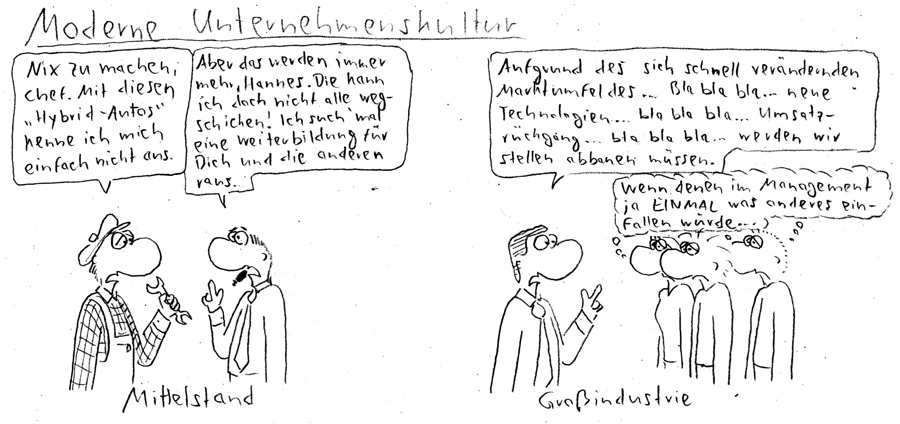 Moderne Unternehmenskultur
Nix zu machen,
Chef. Mit diesen
„Hybrid-Autos"
kenne ich mich
einfach nicht aus.
Aber das werden immer
mehr, Hannes. Die kann
ich doch nicht alle weg-
schicken! Ich such' mal
eine Weiterbildung für
Dich und die anderen
raus.
Mittelstand
Aufgrund des sich schnell verändernden
Marktumfeldes... Bla bla bla... neue
Technologien... bla bla bla... Umsatz-
rückgang... bla bla bla... werden wir
stellen abbauen müssen.
Wenn denen im Management
ja EINMAL was anderes ein-
fallen würde...
Großindustrie